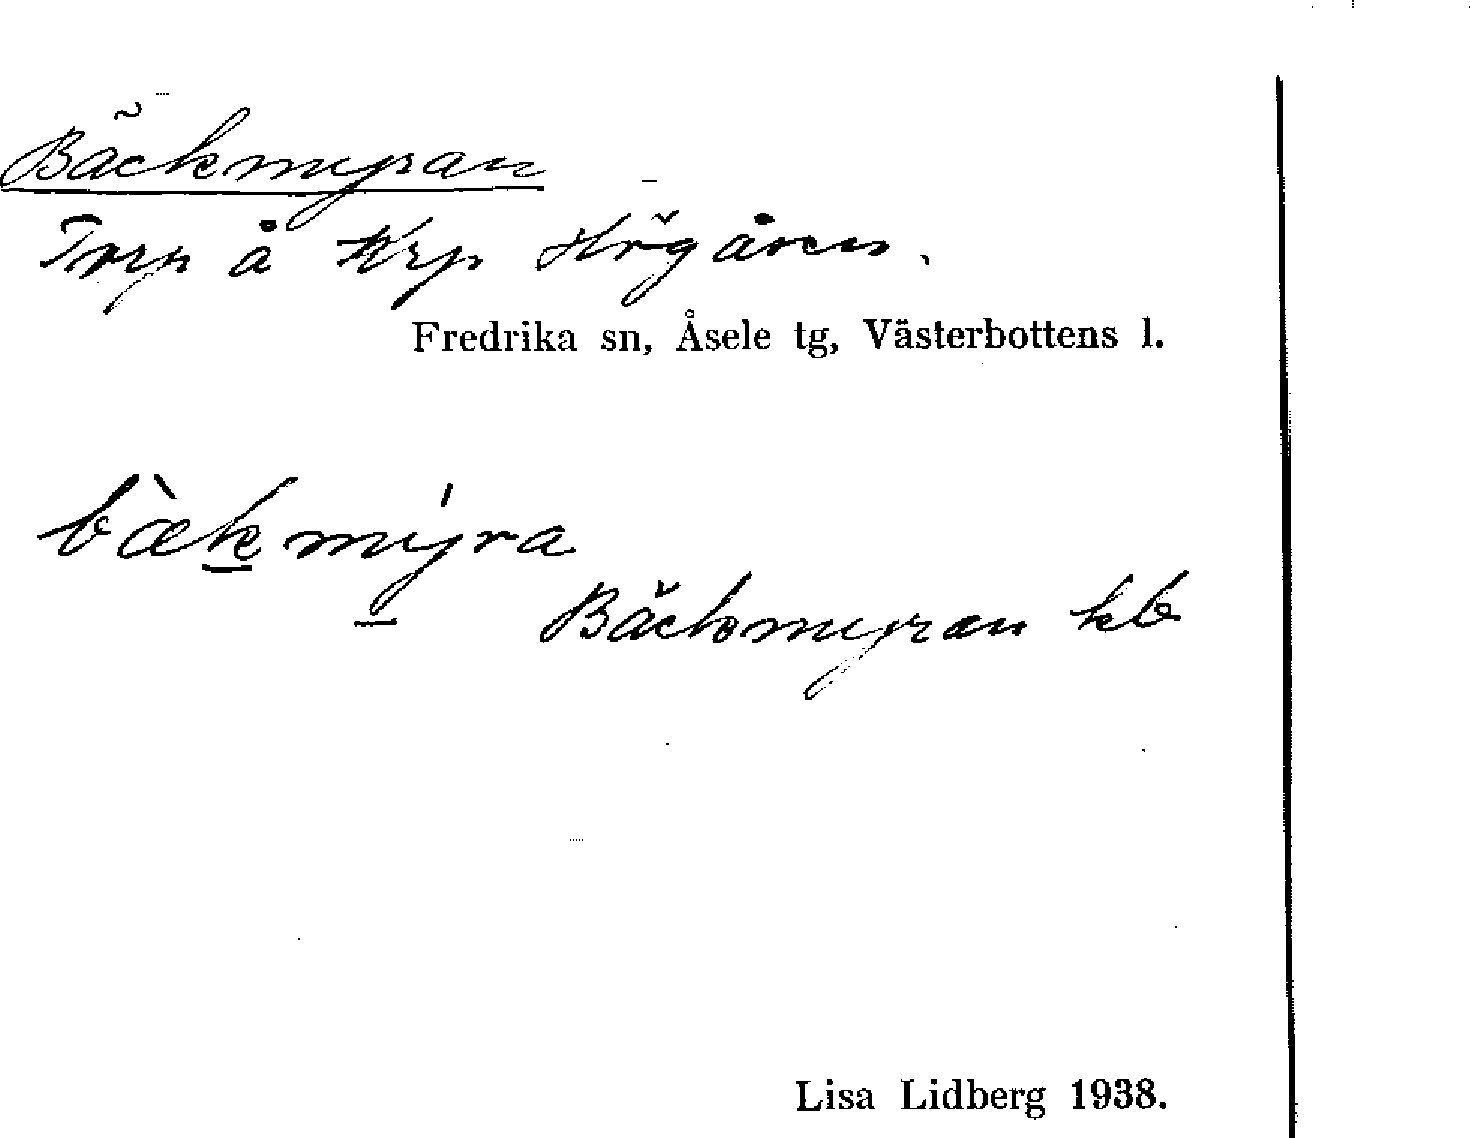 Bäckmyran
Torp å Krp Högåsen.
Fredrika sn, Åsele tg, Västerbottens l.
bæ̀kmýra
Bäckmyran kb
Lisa Lidberg 1938.